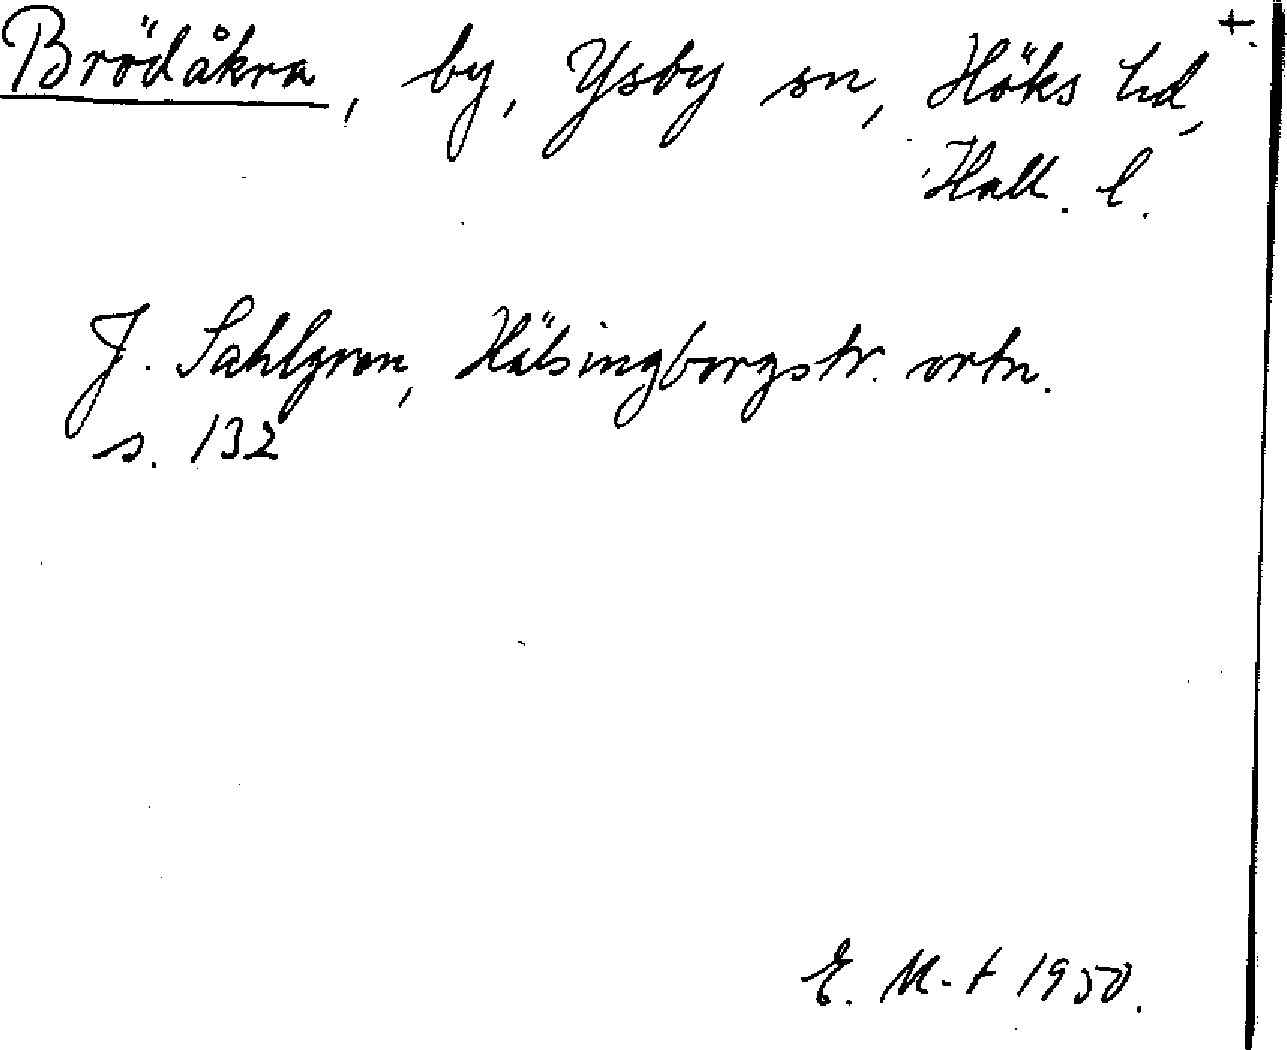 Brödåkra, by, Ysby sn, Höks hd, +.
Hall. l.
J. Sahlgren, Hälsingborgstr. ortn.
s. 132
E. M-t 1950.